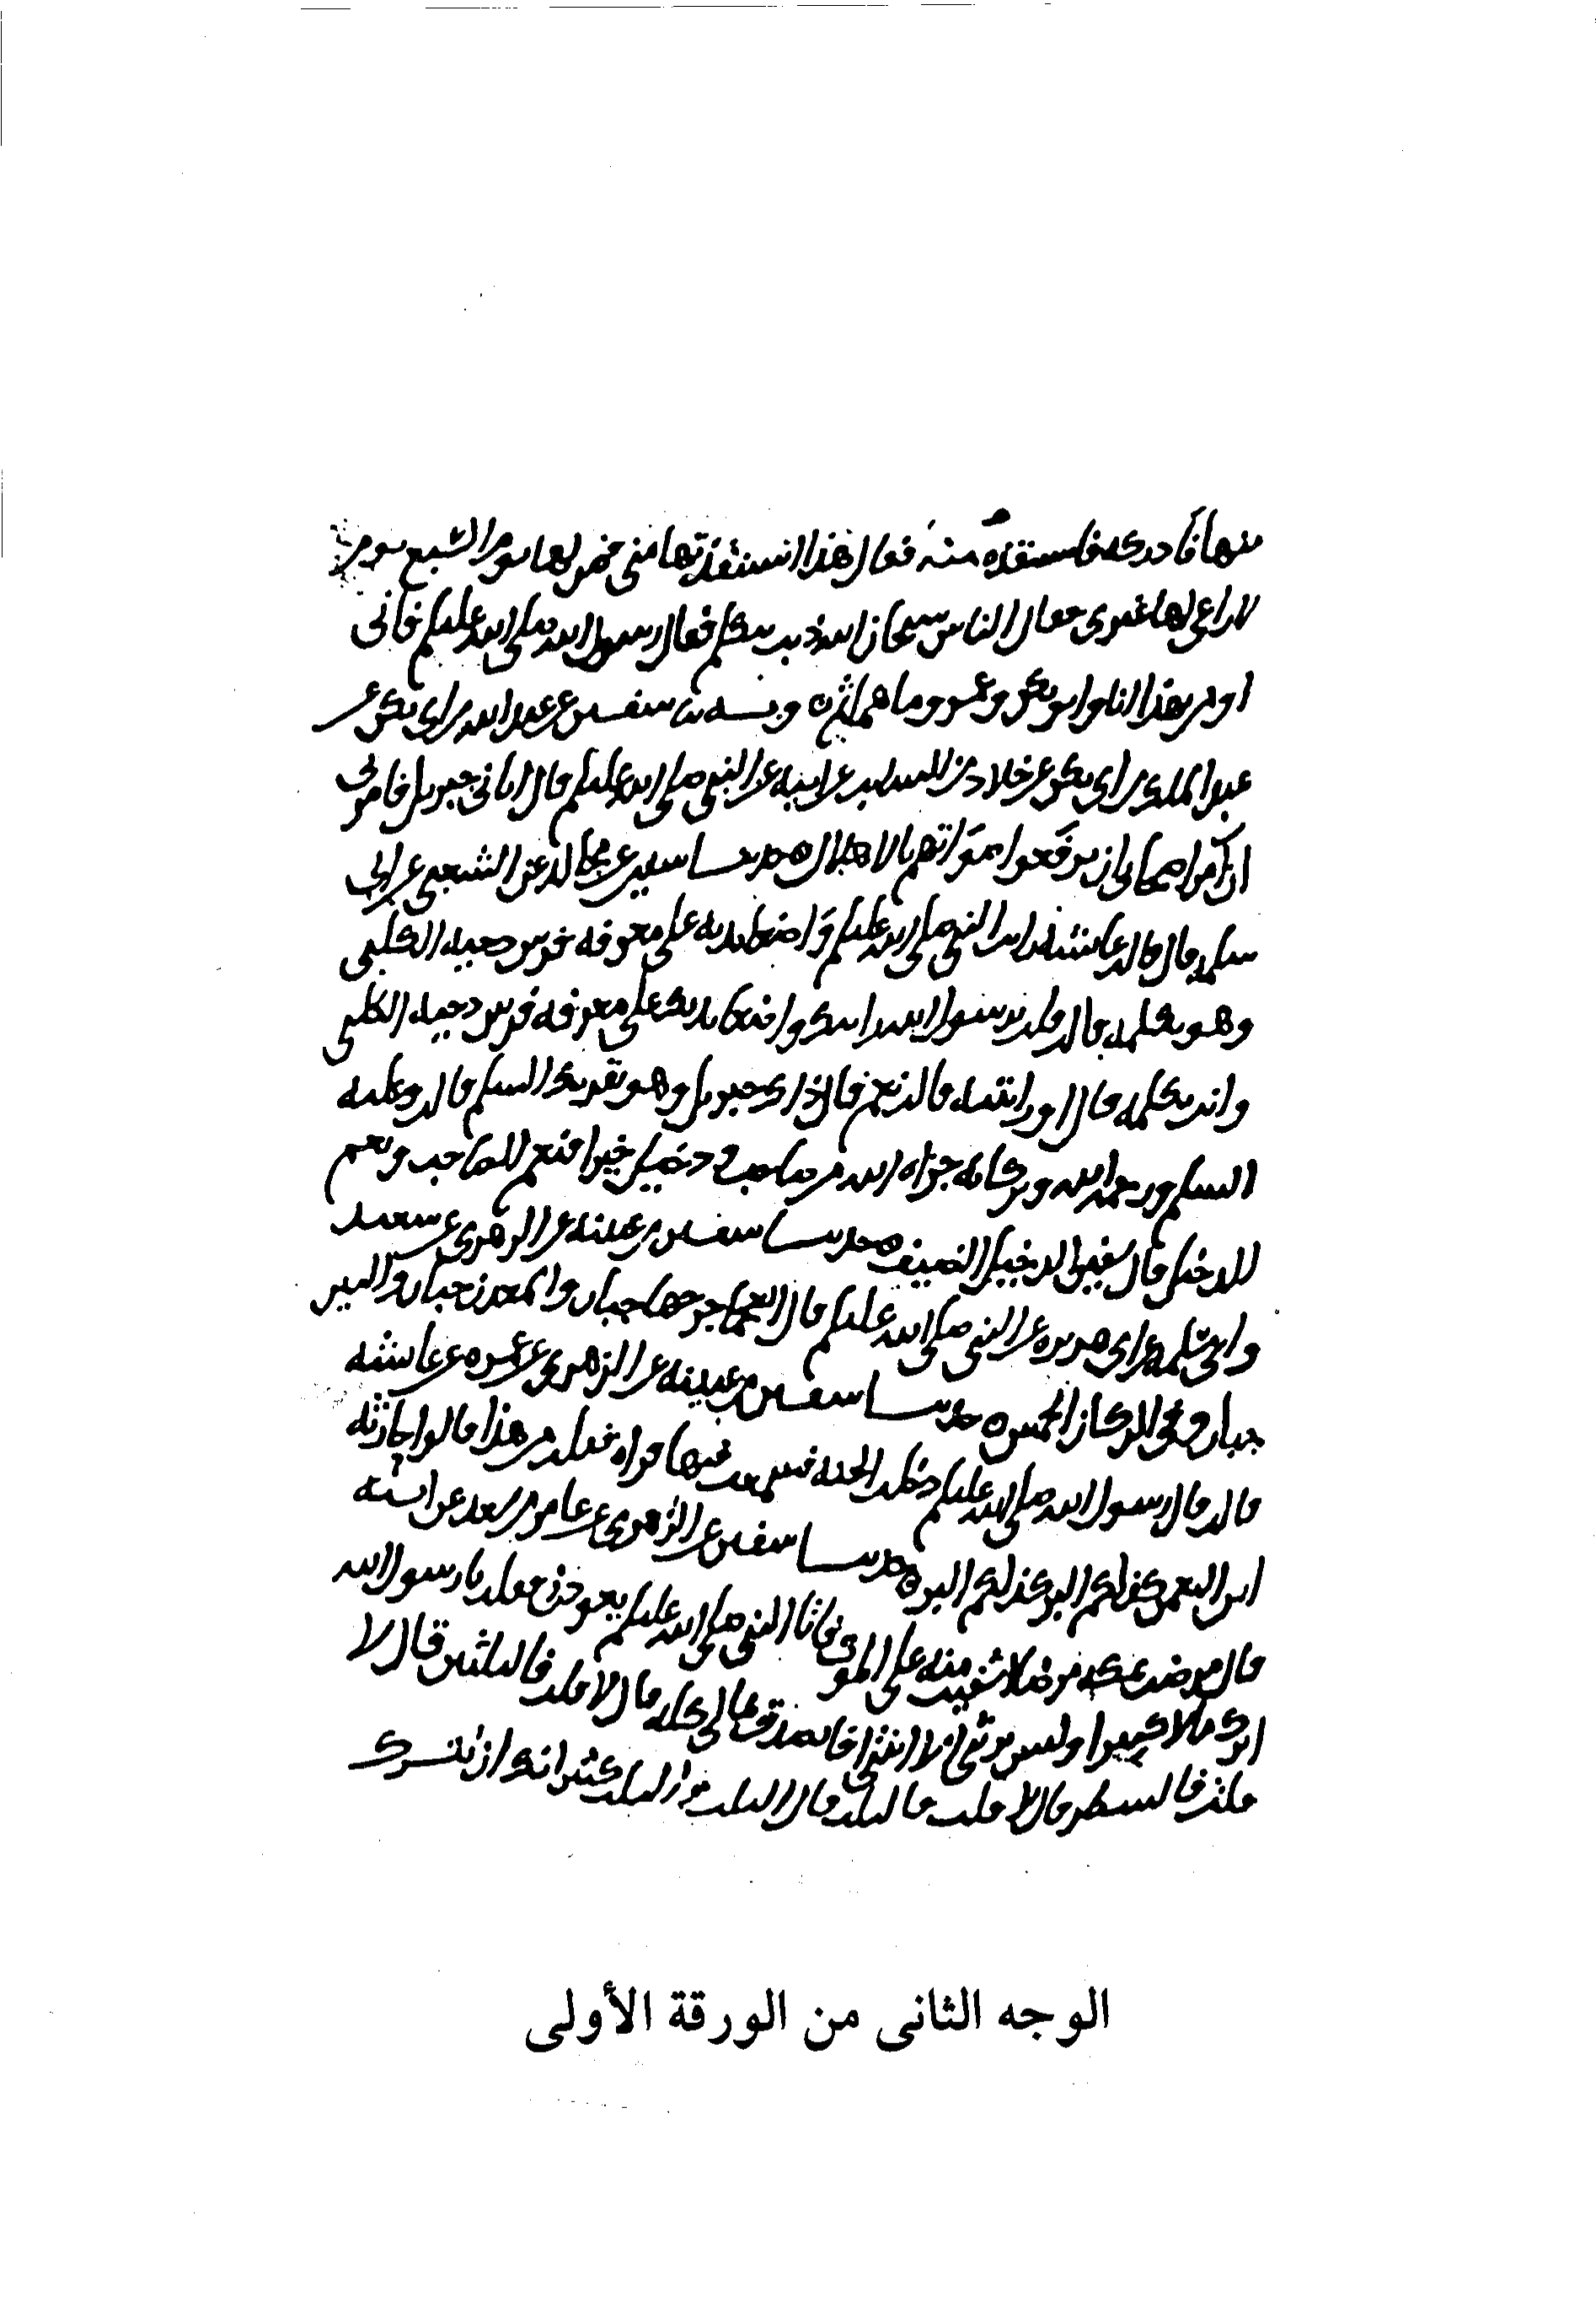 منها فادركه فاستنقذه منه فقال هذا استنقذتها مني فمن لها يوم السبع يوم
لا راعي لها غيري فقال الناس سبحان الله ذيب يتكلم فقال رسول الله صلى الله عليه وسلم فاني
اومن بهذا انا وابو بكر وعمر وما هما ثم وبه نا سفين عن عبد الله بن ابي بكر عن
عبد الملك بن ابي بكر عن خلاد بن السايب عن ابيه عن النبي صلى الله عليه وسلم قال اتاني جبريل فامرني
ان آمر اصحابي ان يرفعوا اصواتهم بالاهلال حدثنا سفين عن مجالد عن الشعبي عن ابي
سلمه قال قالت عايشه رايت النبي صلى الله عليه وسلم واضعا يديه على معرفه فرس دحيه الكلبي
وهو يكلمه قالت قلت يرسول الله رايتك واضعا يديك على معرفه فرس دحيه الكلبي
وانت تكلمه قال اورايتيه قالت نعم قال ذاك جبريل وهو يقريك السلم قالت وعليه
السلم ورحمه الله وبركاته جزاه الله من صاحب ودخيل خيرا فنعم الصاحب ونعم
الدخيل قال سفين الدخيل الضيف حدثنا سفين بن عيينه عن الزهري عن سعيد
وابي سلمه عن ابي هريره عن النبي صلى الله عليه وسلم قال العجما جرحها جبار والمعدن جبار والبير
جبار وفي الركاز الخمس حدثنا سفين بن عيينه عن الزهري عن عمره عن عايشه
قالت قال رسول الله صلى الله عليه وسلم دخلت الجنه فسمعت فيها قراه فقلت من هذا قالوا حارثه
ابن النعمن كذلكم البر كذلكم البر حدثنا سفين عن الزهري عن عامر بن سعد عن ابيه
قال مرضت بمكه مرضا اشفيت منه على الموت فاتانا النبي صلى الله عليه وسلم يعودني فقلت يا رسول الله
ان لي مالا كثيرا وليس يرثني الا ابنتي افاتصدق بمالي كله قال لا قلت فالثلثين قال لا
قلت فالشطر قال لا قلت فالثلث قال الثلث والثلث كثير انك ان تترك
الوجه الثاني من الورقة الأولى